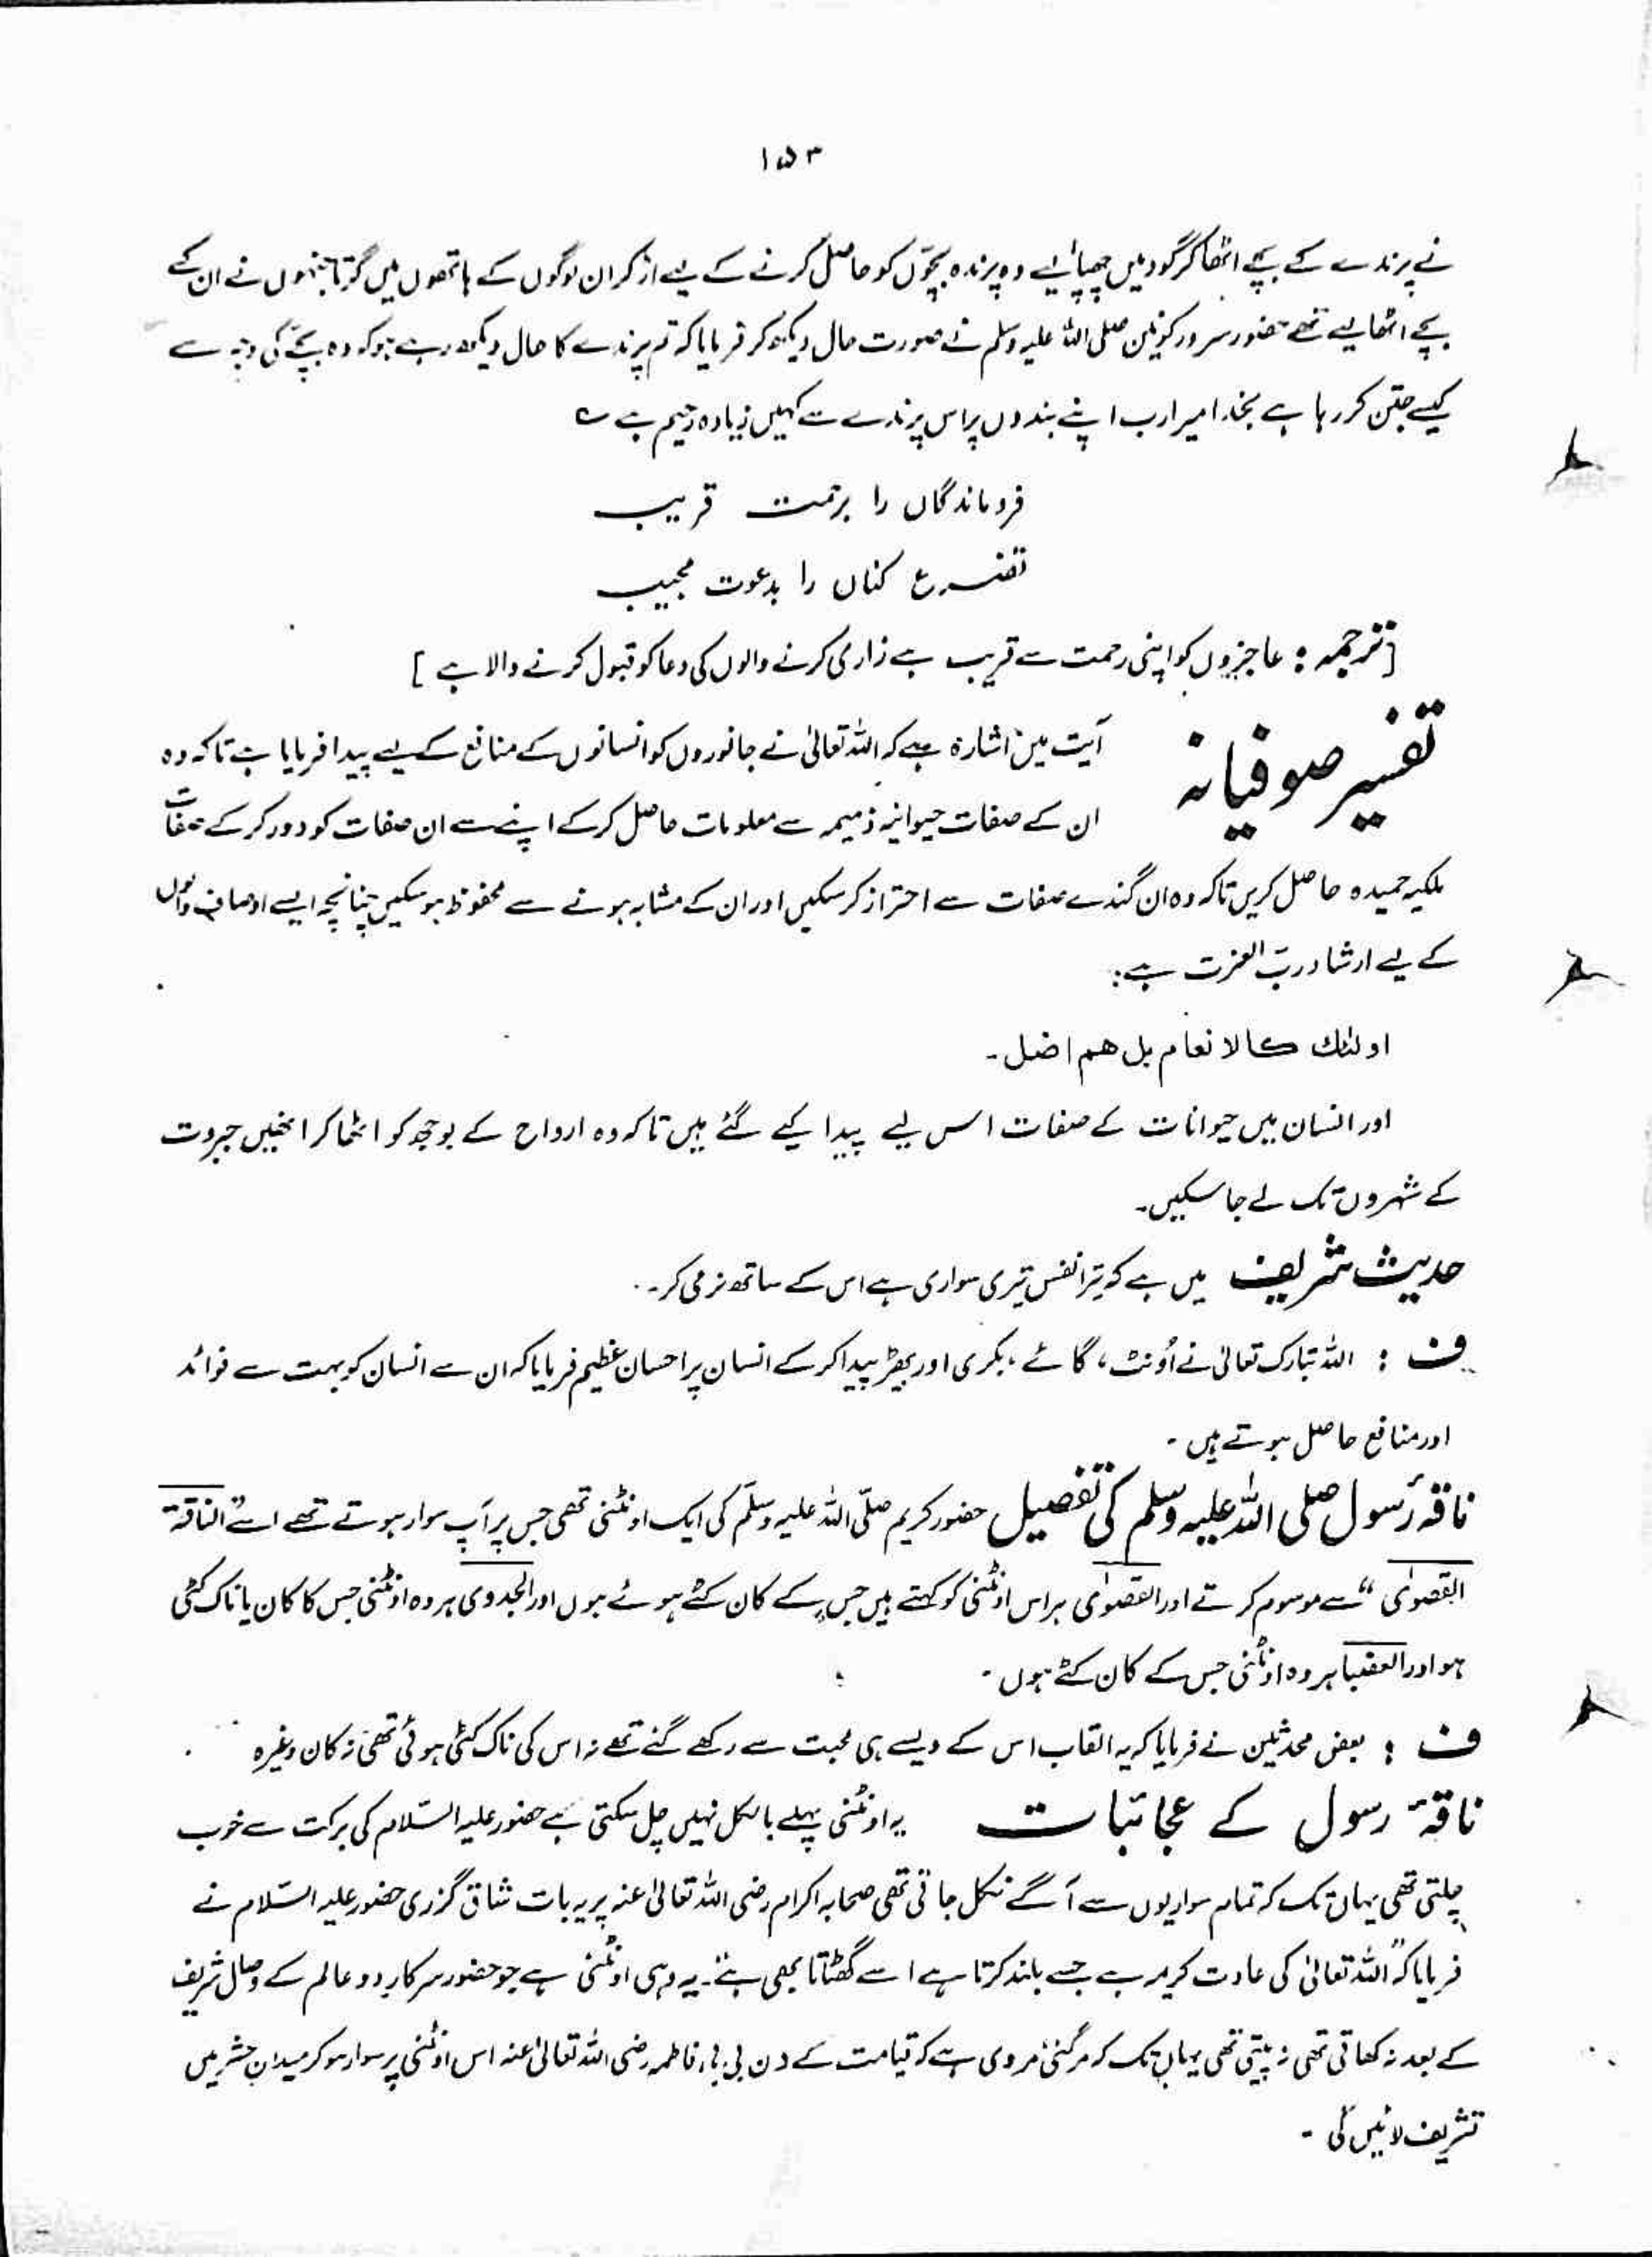 ۱۵۳
نے پرندے کے بچے اٹھا کر گود میں چھپا لیے وہ پرندہ بچوّں کو حاصل کرنے کے لیے اڑ کر ان لوگوں کے ہاتھوں میں گرتا جنہوں نے ان کے
بچے اٹھا لیے تھے حضور سرور کونین صلی اللہ علیہ وسلم نے صورت حال دیکھ کر فرمایا کہ تم پرندے کا حال دیکھ رہے ہو کہ وہ بچے کی وجہ سے
کیسے جتن کر رہا ہے بخدا میرا رب اپنے بندوں پر اس پرندے سے کہیں زیادہ رحیم ہے ؎
فروماندگاں را برحمت قریب
تضرع کناں را بدعوت مجیب
[ترجمہ : عاجزوں کو اپنی رحمت سے قریب ہے زاری کرنے والوں کی دعا کو قبول کرنے والا ہے ]
تفسیر صوفیانہ آیت میں اشارہ ہے کہ اللہ تعالیٰ نے جانوروں کو انسانوں کے منافع کے لیے پیدا فرمایا ہے تاکہ وہ
ان کے صفات حیوانیہ ذمیمہ سے معلومات حاصل کر کے اپنے سے ان صفات کو دور کر کے صفات
ملکیہ حمیدہ حاصل کریں تاکہ وہ ان گندے صفات سے احتراز کر سکیں اور ان کے مشابہ ہونے سے محفوظ ہو سکیں چنانچہ ایسے اوصاف والوں
کے لیے ارشاد ربّ العزت ہے:
اولئك كالانعام بل هم اضل۔
اور انسان میں حیوانات کے صفات اس لیے پیدا کیے گئے ہیں تاکہ وہ ارواح کے بوجھ کو اٹھا کر انھیں جبروت
کے شہروں تک لے جا سکیں۔
حدیث شریف میں ہے کہ تیرا نفس تیری سواری ہے اس کے ساتھ نرمی کر۔
ف : اللہ تبارک تعالیٰ نے اُونٹ، گائے، بکری اور بھیڑ پیدا کر کے انسان پر احسان عظیم فرمایا کہ ان سے انسان کو بہت سے فوائد
اور منافع حاصل ہوتے ہیں۔
ناقۂ رسول صلی اللہ علیہ وسلم کی تفصیل حضور کریم صلّی اللہ علیہ وسلّم کی ایک اونٹنی تھی جس پر آپ سوار ہوتے تھے اسے "الناقۃ
القصوٰی" سے موسوم کرتے اور القصوٰی ہر اس اونٹنی کو کہتے ہیں جس کے کان کٹے ہوئے ہوں اور الجدوی ہر وہ اونٹنی جس کا کان یا ناک کٹی
ہو اور العضبا ہر وہ اونٹنی جس کے کان کٹے ہوں۔
ف : بعض محدثین نے فرمایا کہ یہ القاب اس کے ویسے ہی محبت سے رکھے گئے تھے نہ اس کی ناک کٹی ہوئی تھی نہ کان وغیرہ
ناقۂ رسول کے عجائبات یہ اونٹنی پہلے بالکل نہیں چل سکتی ہے حضور علیہ السّلام کی برکت سے خوب
چلتی تھی یہاں تک کہ تمام سواریوں سے آگے نکل جاتی تھی صحابہ اکرام رضی اللہ تعالیٰ عنہ پر یہ بات شاق گزری حضور علیہ السّلام نے
فرمایا کہ "اللہ تعالیٰ کی عادت کریمہ ہے جسے بلند کرتا ہے اسے گھٹاتا بھی ہے"۔ یہ وہی اونٹنی ہے جو حضور سرکار دو عالم کے وصال شریف
کے بعد نہ کھاتی تھی نہ پیتی تھی یہاں تک کہ مر گئی مروی ہے کہ قیامت کے دن بی بی فاطمہ رضی اللہ تعالیٰ عنہ اس اونٹنی پر سوار ہو کر میدانِ حشر میں
تشریف لائیں گی۔